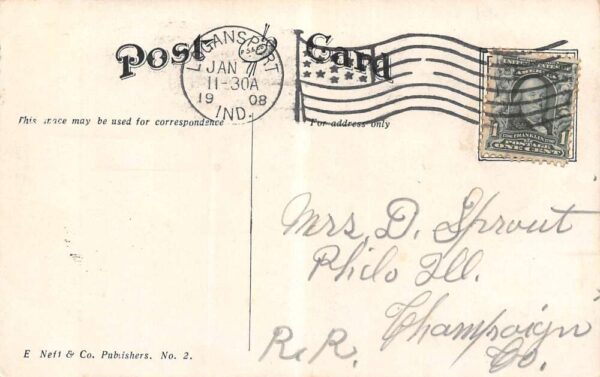 Post Card
LOGANSPORT
JAN
11-30A
1908
IND.
UNITED STATES
OF AMERICA
1 FRANKLIN 1
POSTAGE
ONE CENT
This space may be used for correspondence
For address only
Mrs. D. Sprout
Philo Ill.
Champaign
R.R. Co.
E Neff & Co. Publishers. No. 2.